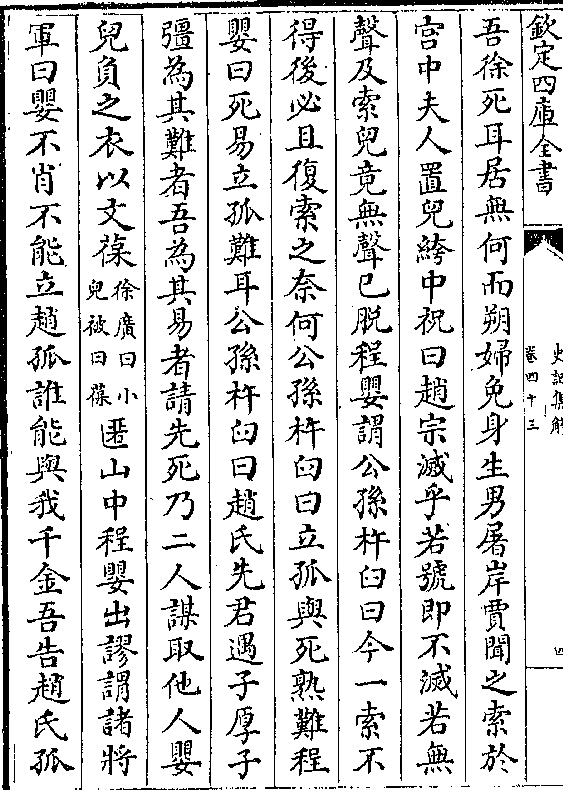 欽定四庫全書
史記集解
卷四十三
四
吾徐死耳居無何而朔婦免身生男屠岸賈聞之索於
宮中夫人置兒絝中祝曰趙宗滅乎若號即不滅若無
聲及索兒竟無聲已脱程嬰謂公孫杵臼曰今一索不
得後必且復索之奈何公孫杵臼曰立孤與死熟難程
嬰曰死易立孤難耳公孫杵臼曰趙氏先君遇子厚子
彊為其難者吾為其易者請先死乃二人謀取他人嬰
兒負之衣以文葆徐廣曰小兒被曰葆匿山中程嬰出謬謂諸將
軍曰嬰不肖不能立趙孤誰能與我千金吾告趙氏孤